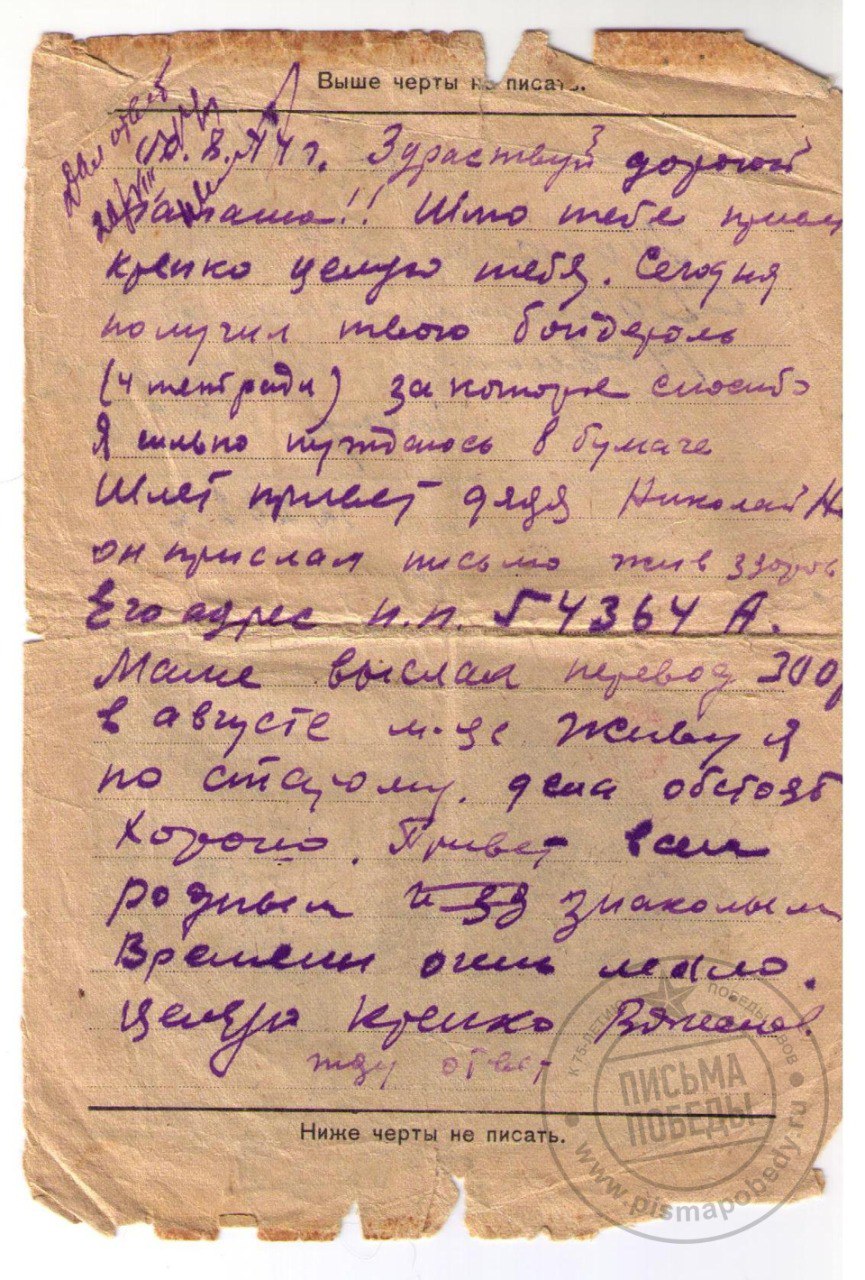 Выше черты не писать.
Дал ответ
20/VIII
10.8.44 г. Здраствуй дорогой
папаша!! Шлю тебе привет
крепко целую тебя. Сегодня
получил твою бондероль
(4 тетради) за которые спасибо
Я сильно нуждаюсь в бумаге
Шлет привет дядя Николай
он прислал письмо жив здоров
Его адрес п.п. 54364 А.
Маме выслал перевод 300р
в августе м-це. Живу я
по старому, дела обстоят
хорошо. Привет всем
родным и знакомым
Времени очень мало.
Целую крепко
жду ответ
Ниже черты не писать.
К 75-ЛЕТИЮ ПОБЕДЫ
ПИСЬМА
ПОБЕДЫ
www.pismapobedy.ru